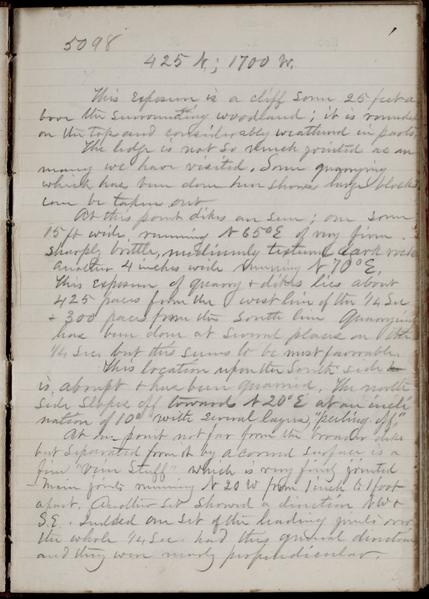 5098
425 N; 1700 W.
This exposure is a cliff some 25 feet a-
bove the surrounding woodland; it is rounded
on the tops and considerably weathered in parts.
The ledge is not so much jointed as are
many we have visited. Some quarrying
which has been done here shows large blocks
can be taken out.
At this point dikes are seen; one some
15 ft wide running N 65° E of very firm
sharply brittle, mediumly textured dark rock
another 4 inches wide running N 70° E.
This exposure of quarry + dikes lies about
425 paces from the west line of the 1/4 Sec
+ 300 paces from the South line Quarrying
has been done at several places on this
1/4 Sec. but this seems to be most favorable.
This location upon the South side
is abrupt + has been quarried. The north
side slopes off toward N 20° E at an incli
nation of 10° with several layers "peeling off"
At one point not far from the broader dike
but separated from it by a covered surface is a
fine "Vein Stuff" which is very finely jointed
Main joints running N 20 W from 1 inch to 1 foot
apart. Another set showed a direction N W +
S. E. Indeed one set of the leading joints over
the whole 1/4 Sec. had this general direction
and they were nearly perpendicular.